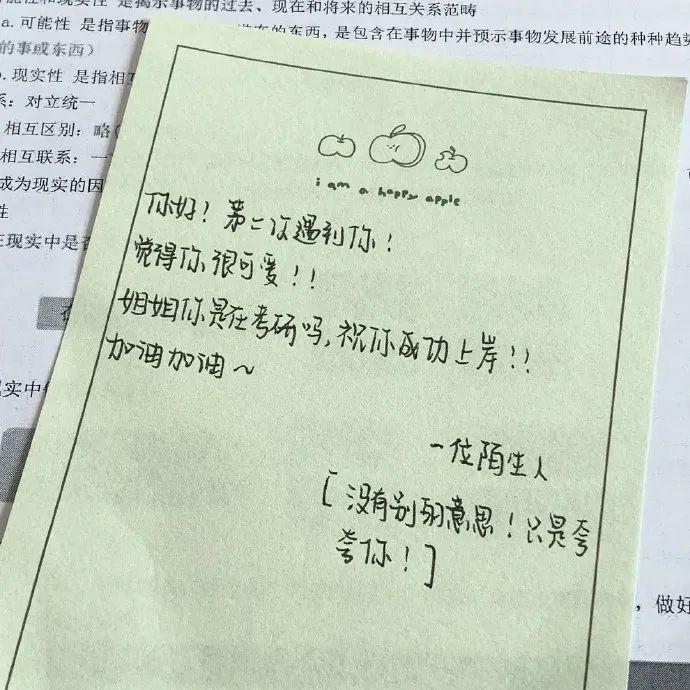 可能性和现实性 是揭示事物的过去、现在和将来的相互关系范畴
a.可能性 是指事物
在的东西，是包含在事物中并预示事物发展前途的种种趋势
的事或东西）
.现实性 是指相互
系：对立统一
相互区别：略
相互联系：一
成为现实的因
性
在现实中是否
现实中
i am a happy apple
你好！第二次遇到你！
觉得你很可爱！！
姐姐你是在考研吗，祝你成功上岸！！
加油加油～
一位陌生人
[ 没有别的意思！只是夸
夸你！]
，做好